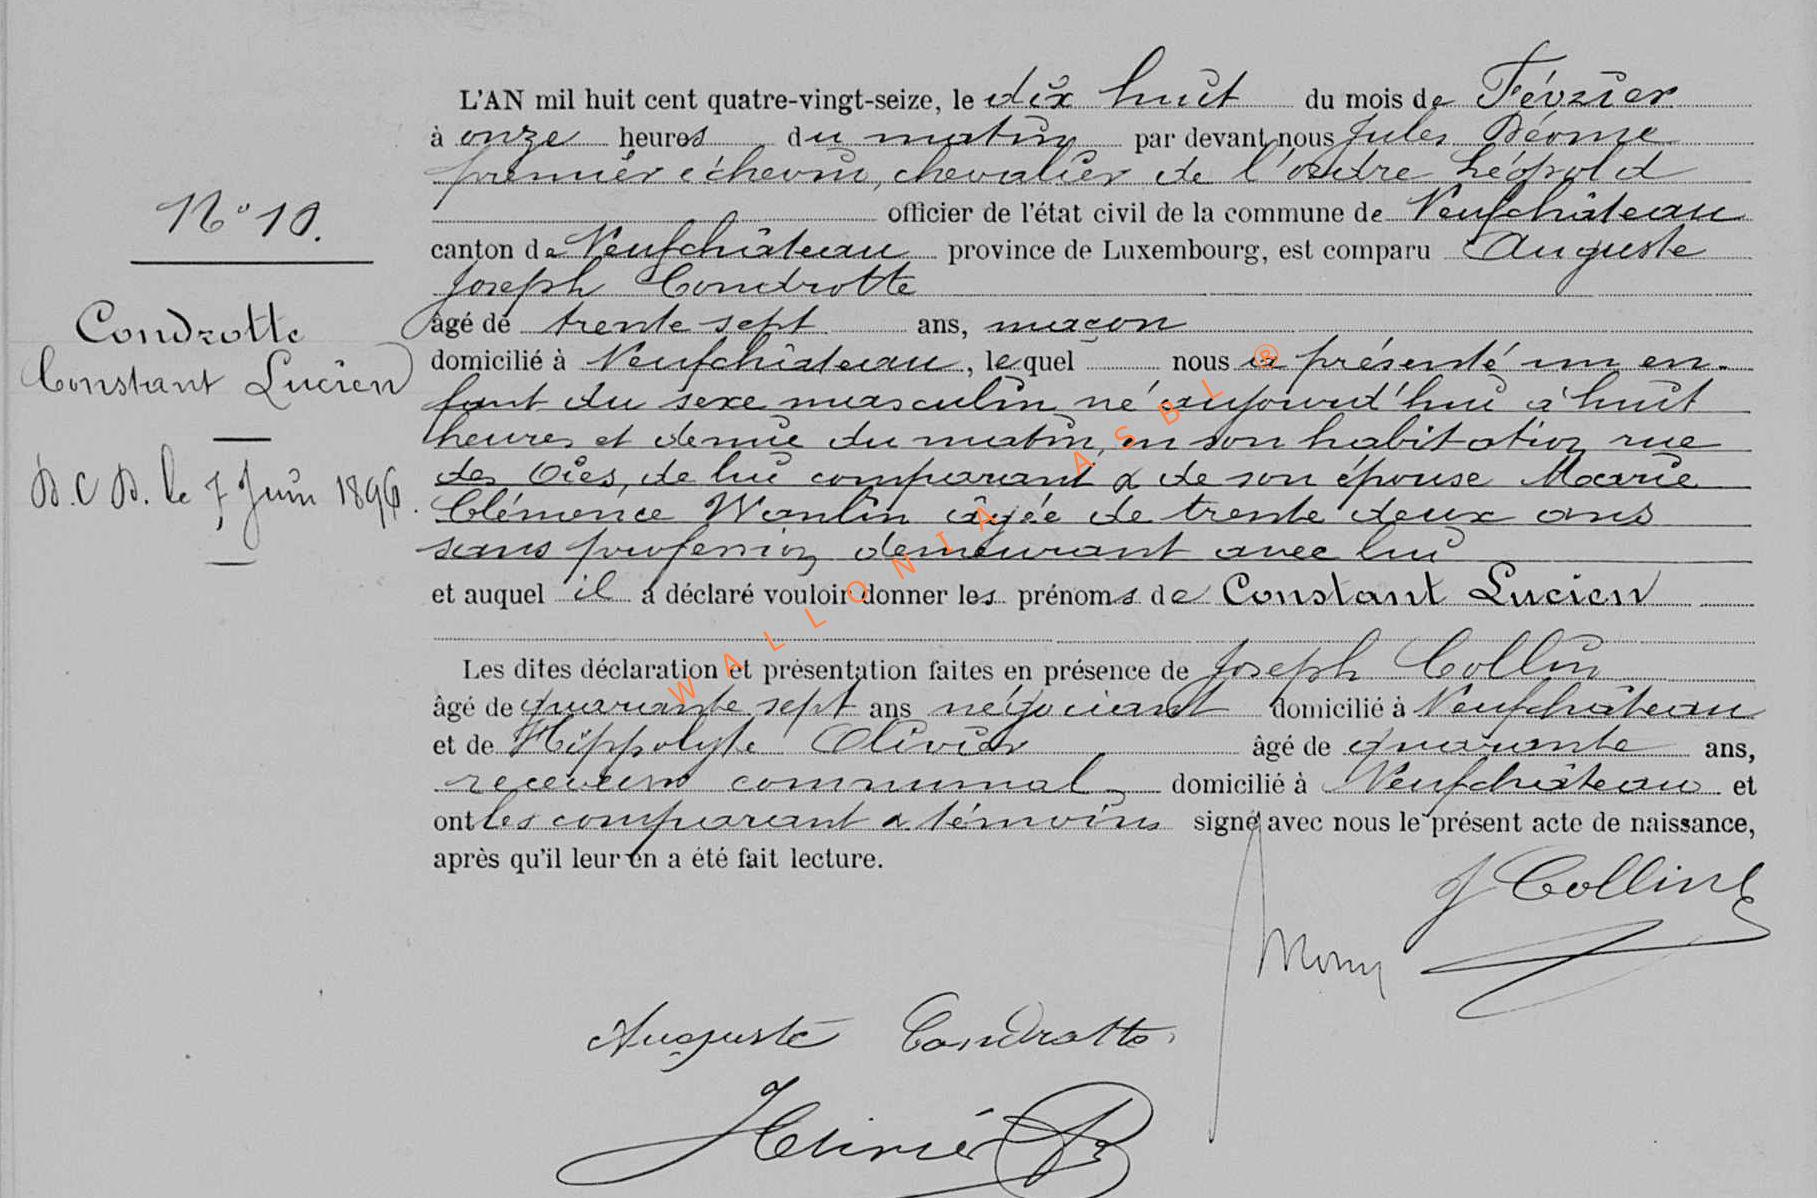 N° 10.
Condrotte
Constant Lucien
D.C.D. le 7 Juin 1896.
L'AN mil huit cent quatre-vingt-seize, le dix huit du mois de Février
à onze heures du matin par devant nous Jules Déome
premier échevin, chevalier de l'ordre Léopold
officier de l'état civil de la commune de Neufchâteau
canton de Neufchâteau province de Luxembourg, est comparu Auguste
Joseph Condrotte
âgé de trente sept ans, maçon
domicilié à Neufchâteau, lequel nous a présenté un en-
fant du sexe masculin né aujourd'hui à huit
heures et demie du matin, en son habitation rue
des Oies, de lui comparant & de son épouse Marie
Clémence Wanlin âgée de trente deux ans
sans profession demeurant avec lui
et auquel il a déclaré vouloir donner les prénoms de Constant Lucien
Les dites déclaration et présentation faites en présence de Joseph Collin
âgé de quarante sept ans négociant domicilié à Neufchâteau
et de Hippolyte Olivier âgé de quarante ans,
receveur communal domicilié à Neufchâteau et
ont les comparant & témoins signé avec nous le présent acte de naissance,
après qu'il leur en a été fait lecture.
J Collin
Auguste Condrotte
H Olivier
WALLONIA ASBL ®